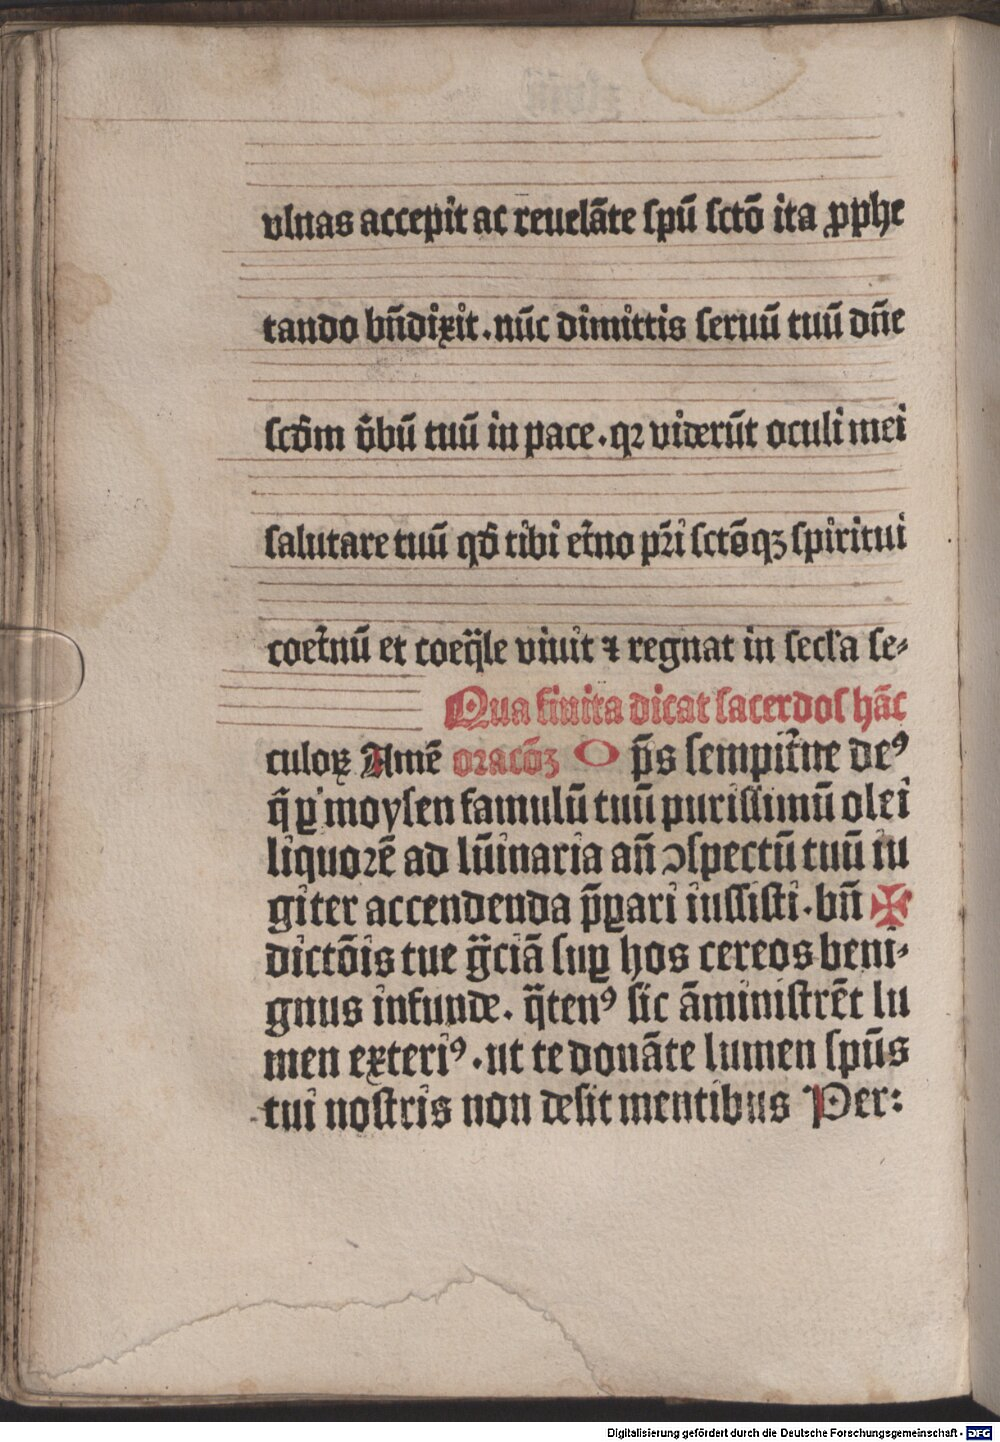 vlnas accepit ac reuelāte ſpū ſctō ita ꝓphe
tando bn̄dixit. nūc dimittis ſeruū tuū dn̄e
ſcd̄m v̄bū tuū in pace. qꝛ viderūt oculi mei
ſalutare tuū qd̄ tibi et̄no pr̄i ſctōqꝫ ſpiritui
coet̄nū et coeq̄le viuit ⁊ regnat in ſecl'a ſe-
Qua finita dicat ſacerdoſ hāc
culoꝝ Amē oꝛacōꝫ O p̄s ſempit̄ne deꝰ
q̄ ꝑ moyſen famulū tuū puriſſimū olei
liquoꝛē ad lūinaria an̄ ↄſpectū tuū iu
giter accendenda p̄ꝑari iuſſiſti. bn̄ ✠
dictōis tue gr̄ciā ſuꝑ hos cereos beni-
gnus infunde. q̄tenꝰ ſic āminiſtrēt lu
men exteriꝰ. ut te donāte lumen ſpūs
tui noſtris non deſit mentibus Per:
Digitalisierung gefördert durch die Deutsche Forschungsgemeinschaft - DFG